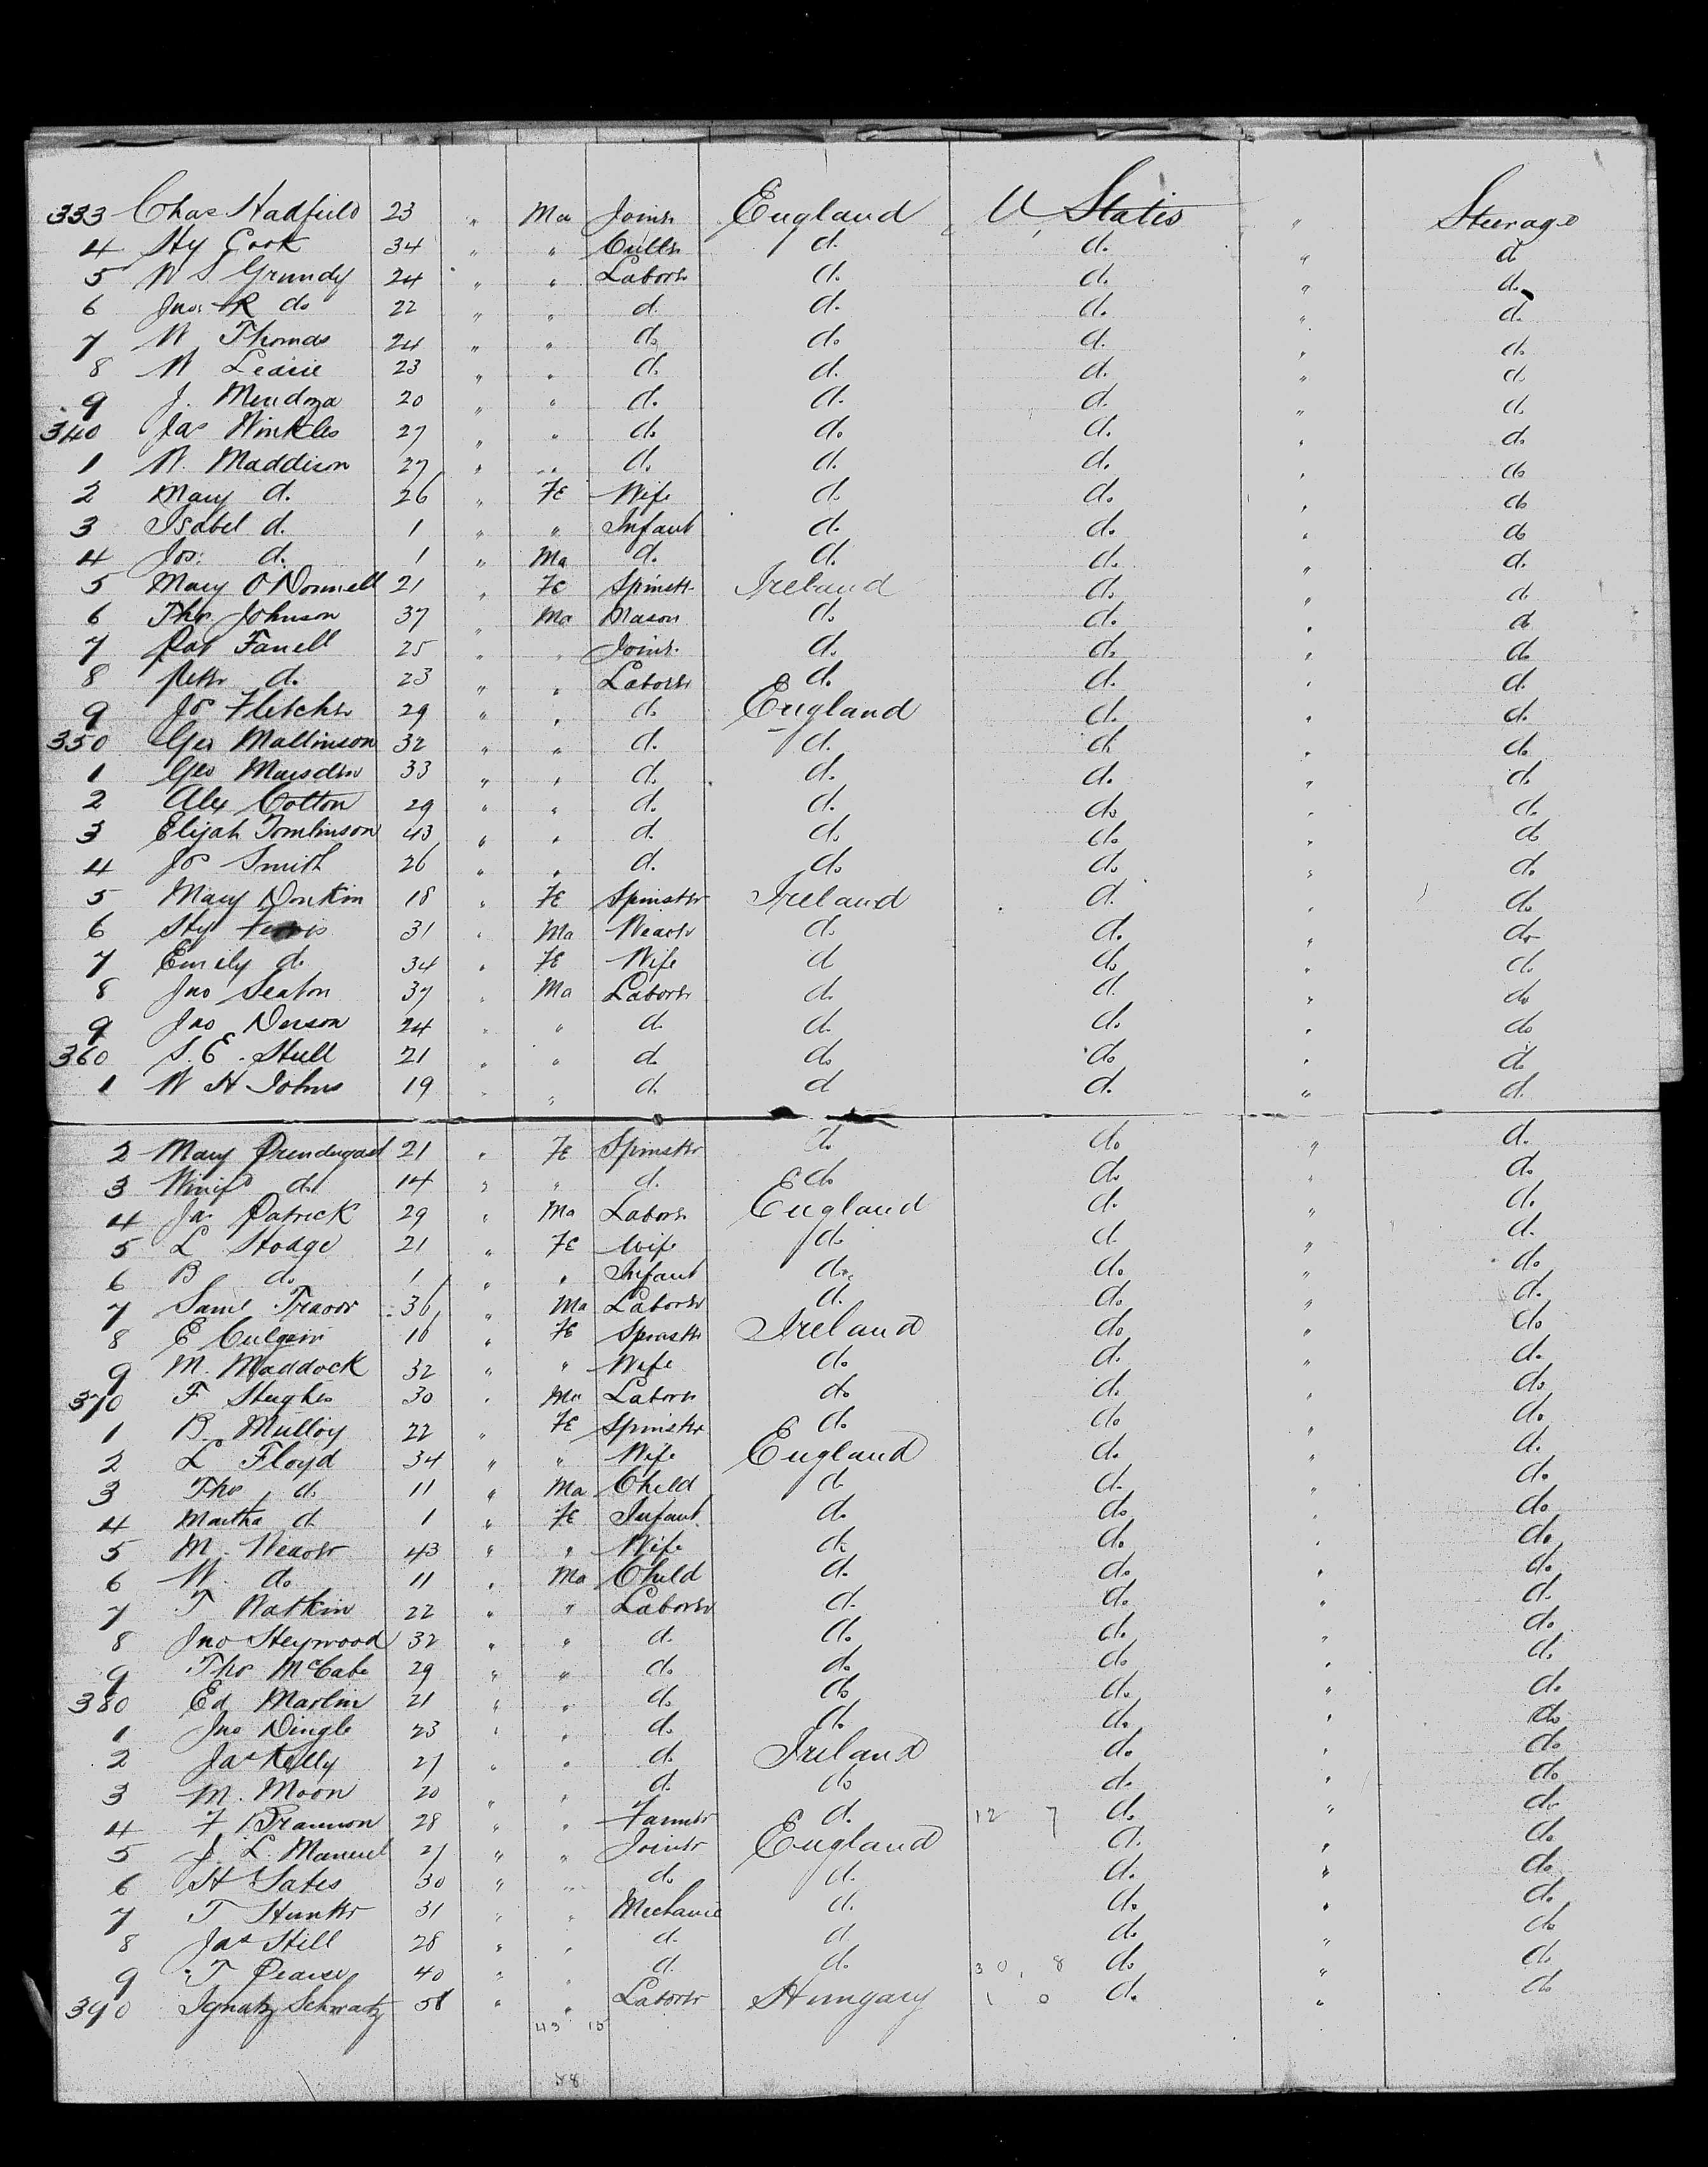 333 Chas Hadfield 23 " Ma Joiner England U States " Steerage
4 Hy Cook 34 " " Cutler d. d. " d
5 W S Grundy 24 " " Laborer d. d. " d.
6 Jno R do 22 " " d. d. d. " d.
7 W Thomas 24 " " do do d. " do
8 W 23 " " d. d. d. " d.
9 J. Mendoza 20 " " d. d. d. " d.
340 Jas Winkles 27 " " do do d. " do
1 W. Maddison 27 " " d. d. d. " do
2 Mary d. 26 " Fe Wife d. do. " do
3 Isabel d. 1 " " Infant d. d. " do
4 Jos: d. 1 " Ma d. d. d. " d.
5 Mary O'Donnell 21 " Fe Spinstr Ireland d. " d.
6 Thos Johnson 37 " Ma Mason d. d. " do
7 Pat Farrell 25 " " Joinr. d. d. " do
8 Peter d. 23 " " Laborer d. d. " d.
9 Jos Fletcher 29 " " do England d. " d.
350 Geo Mallinson 32 " " d. d. d. " do
1 Geo Marsden 33 " " d. d. d. " d.
2 Alex Cotton 29 " " d. d. do " d.
3 Elijah Tomlinson 43 " " d. do do " do
4 Jos Smith 26 " " d. do do " do.
5 Mary Donkin 18 " Fe Spinster Ireland d. " do
6 Hy 31 " Ma Weaver d. d. " do
7 Emily d. 34 " Fe Wife d do " do
8 Jno Seaton 37 " Ma Laborer d. d. " do
9 Jas 24 " " d. d. do " do
360 S. E. Stull 21 " " d. do do " do
1 W H Johns 19 " " d. d d. " d.
2 Mary Prendergast 21 " Fe Spinster d. do " d.
3 Winifd do 14 " " d. do do " do.
4 Jas Patrick 29 " Ma Laborer England d. " d.
5 L Hodge 21 " Fe Wife do d. " d.
6 B do 1 " " Infant do. do. " do
7 Saml Travor 36 " Ma Laborer d. do " d.
8 E Culgein 16 " Fe Spinster Ireland do " do
9 M. Maddock 32 " " Wife do. d. " d.
370 F Hughes 30 " Ma Laborer do d. " do
1 B. Mulloy 22 " Fe Spinster do. do " do
2 L Floyd 34 " " Wife England d. " d.
3 Thos d. 11 " Ma Child d. d. " do
4 Martha d. 1 " Fe Infant d. do " do
5 M. Weaver 43 " " Wife d. do. " do
6 W. do. 11 " Ma Child d. do " do
7 T Watkin 22 " " Laborer d. do. " d.
8 Jno Heywood 32 " " d. d. d. " do
9 Thos McCabe 29 " " do do do " d.
380 Ed Martin 21 " " do do do. " d.
1 Jno Dingle 23 " " do do do. " do
2 Jas Kelly 27 " " d. Ireland do " do
3 M. Moon 20 " " d. do d. " do
4 F Brannon 28 " " Farmer d. 12 7 d. " do
5 J. L. Manuel 27 " " Joiner England d. " do
6 H Yates 30 " " do d. d. " do
7 T Hunter 31 " " Mechanic d. d. " d.
8 Jas Hill 28 " " d. d d. " do
9 T Pearse 40 " " d. d. 30, 8 do " do
390 Ignatz Schwartz 58 " " Laborer Hungary 1 0 d. " do
43 15
58